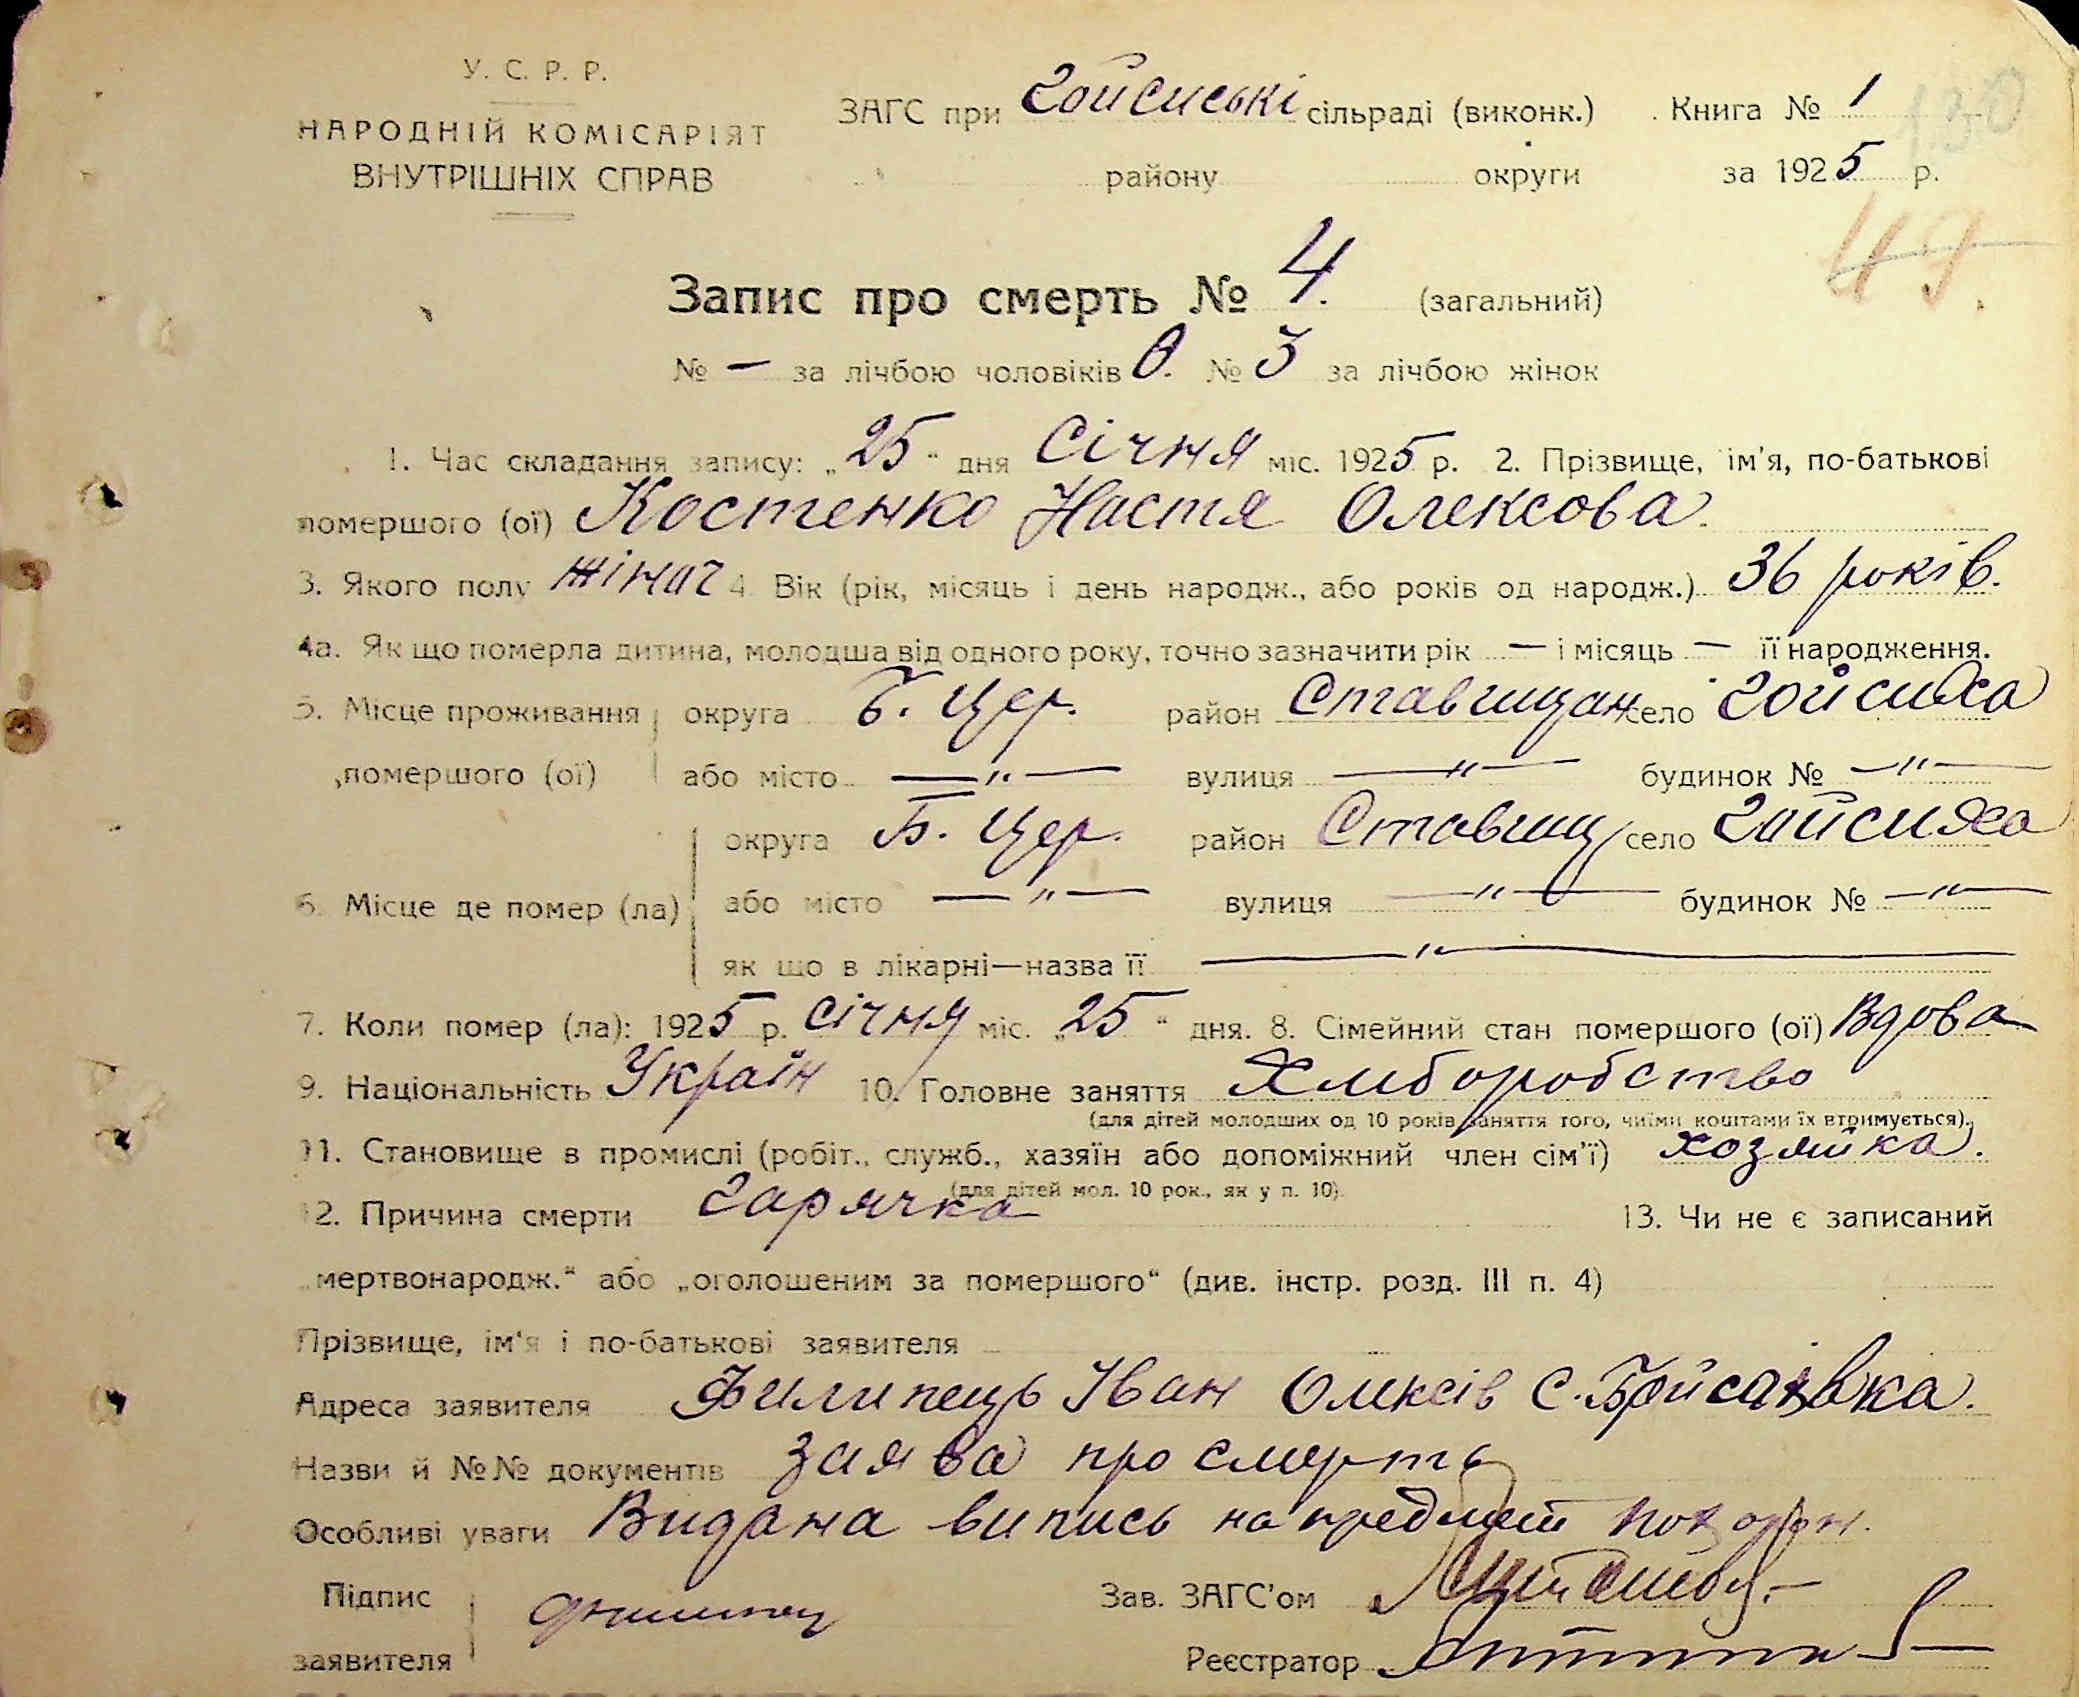 У. С. Р. Р.
НАРОДНІЙ КОМІСАРІЯТ
ВНУТРІШНІХ СПРАВ
ЗАГС при сільраді (виконк.) Книга № 1
130
району округи за 1925 р.
49
Запис про смерть № 4. (загальний)
№ — за лічбою чоловіків 0. № 3 за лічбою жінок
1. Час складання запису: „25“ дня Січня міс. 1925 р. 2. Прізвище, ім'я, по-батькові
помершого (ої) Костенко Настя Олексова.
3. Якого полу жіноч 4. Вік (рік, місяць і день народж., або років од народж.) 36 років.
4а. Як що померла дитина, молодша від одного року, точно зазначити рік — і місяць — її народження.
5. Місце проживання округа Б. Цер. район Ставищан село
помершого (ої) або місто —„— вулиця —„— будинок № —„—
округа Б. Цер. район Ставищ село
6. Місце де помер (ла) або місто —„— вулиця —„— будинок № —„—
як що в лікарні—назва її —„—
7. Коли помер (ла): 1925 р. Січня міс. „25“ дня. 8. Сімейний стан помершого (ої) Вдова
9. Національність Україн 10. Головне заняття Хліборобство
(для дітей молодших од 10 років заняття того, чиїми коштами їх втримується).
11. Становище в промислі (робіт., служб., хазяїн або допоміжний член сім'ї) хозяйка.
(для дітей мол. 10 рок., як у п. 10).
12. Причина смерти гарячка 13. Чи не є записаний
„мертвонародж.“ або „оголошеним за помершого“ (див. інстр. розд. III п. 4)
Прізвище, ім'я і по-батькові заявителя
Адреса заявителя Филипець Іван Олексів С.
Назви й №№ документів заява про смерть
Особливі уваги Видана випись на предмет похорон.
Підпис
заявителя
Зав. ЗАГС'ом
Реєстратор